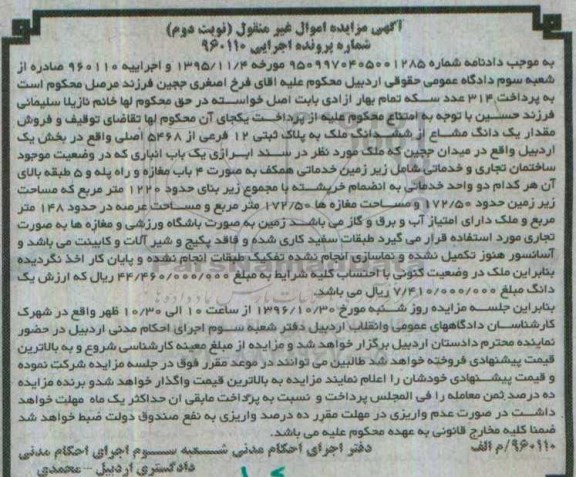 آگهی مزایده اموال غیر منقول (نوبت دوم)
شماره پرونده اجرایی ۹۶۰۱۱۰
به موجب دادنامه شماره ۹۵۰۹۹۷۰۴۰۵۰۰۱۲۸۵ مورخه ۱۳۹۵/۱۱/۴ و اجراییه ۹۶۰۱۱۰ صادره از
شعبه سوم دادگاه عمومی حقوقی اردبیل محکوم علیه اقای فرخ اصغری ججین فرزند مرصل محکوم است
به پرداخت ۳۱۴ عدد سکه تمام بهار ازادی بابت اصل خواسته در حق محکوم لها خانم نازیلا سلیمانی
فرزند حسین با توجه به امتناع محکوم علیه از پرداخت یکجای آن محکوم لها تقاضای توقیف و فروش
مقدار یک دانگ مشاع از ششدانگ ملک به پلاک ثبتی ۱۲ فرعی از ۵۴۶۸ اصلی واقع در بخش یک
اردبیل واقع در میدان ججین که ملک مورد نظر در سند ابرازی یک باب انباری که در وضعیت موجود
ساختمان تجاری و خدماتی شامل زیر زمین خدماتی همکف به صورت ۴ باب مغازه و راه پله و ۵ طبقه بالای
آن هر کدام دو واحد خدماتی به انضمام خرپشته با مجموع زیر بنای حدود ۱۲۲۰ متر مربع که مساحت
زیر زمین حدود ۱۷۲/۵۰ و مساحت مغازه ها ۱۷۲/۵۰ متر مربع و مساحت عرصه در حدود ۱۴۸ متر
مربع و ملک دارای امتیاز آب و برق و گاز می باشد زمین به صورت باشگاه ورزشی و مغازه ها به صورت
تجاری مورد استفاده قرار می گیرد طبقات سفید کاری شده و فاقد پکیج و شیر آلات و کابینت می باشد و
آسانسور هنوز تکمیل نشده و نماسازی انجام نشده تفکیک طبقات انجام نشده و پایان کار اخذ نگردیده
بنابراین ملک در وضعیت کنونی با احتساب کلیه شرایط به مبلغ ۴۴/۴۶۰/۰۰۰/۰۰۰ ریال که ارزش یک
دانگ مبلغ ۷/۴۱۰/۰۰۰/۰۰۰ ریال می باشد.
بنابراین جلسه مزایده روز شنبه مورخ ۱۳۹۶/۱۰/۳۰ از ساعت ۱۰ الی ۱۰/۳۰ ظهر واقع در شهرک
کارشناسان دادگاههای عمومی وانقلاب اردبیل دفتر شعبه سوم اجرای احکام مدنی اردبیل در حضور
نماینده محترم دادستان اردبیل برگزار خواهد شد و مزایده از مبلغ معینه کارشناسی شروع و به بالاترین
قیمت پیشنهادی فروخته خواهد شد طالبین می توانند در موعد مقرر فوق در جلسه مزایده شرکت نموده
و قیمت پیشنهادی خودشان را اعلام نمایند مزایده به بالاترین قیمت واگذار خواهد شدو برنده مزایده
ده درصد ثمن معامله را فی المجلس پرداخت و نسبت به پرداخت مابقی ان حداکثر یک ماه مهلت خواهد
داشت در صورت عدم واریزی در مهلت مقرر ده درصد واریزی به نفع صندوق دولت ضبط خواهد شد
ضمنا کلیه مخارج قانونی به عهده محکوم علیه می باشد.
۹۶۰۱۱۰/م الف دفتر اجرای احکام مدنی شعبه سوم اجرای احکام مدنی
دادگستری اردبیل – محمدی